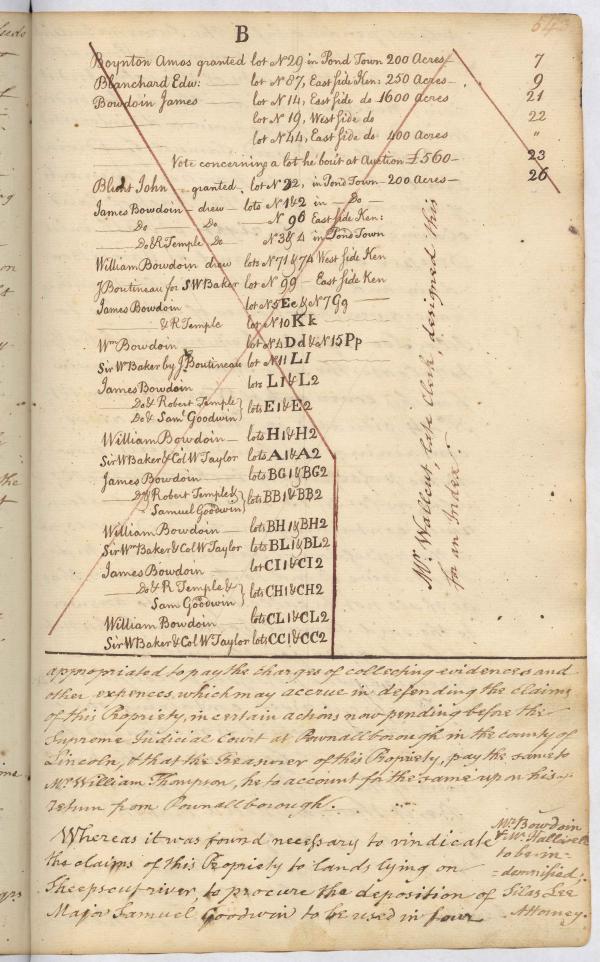 543
B
Boynton Amos granted lot N 29 in Pond Town 200 Acres 7
Blanchard Edw: lot N 87, East side Ken: 250 Acres 9
Bowdoin James lot N 14, East side do 1600 Acres 21
lot N 19, West side do 22
lot N 44, East side do 400 Acres "
Note concerning a lot he bou't at Auction £560 23
Blunt John granted lot N 22, in Pond Town 200 Acres 26
James Bowdoin drew lots N 1 & 2 in Do
Do Do N 96 East side Ken:
Do & R Temple Do N 3 & 4 in Pond Town
William Bowdoin drew lots N 71 & 74 West side Ken
J Boutineau for S W Baker lot N 99 East side Ken
James Bowdoin lot N 5 Ee & N 7 Gg
& R Temple lot N 10 Kk
Wm Bowdoin lot N 4 Dd & N 15 Pp
Sir Wm Baker by J. Boutineau lot N 11 Ll
James Bowdoin lots L1 & L2
Do & Robert Temple
Do & Saml Goodwin } lots E1 & E2
William Bowdoin lots H1 & H2
Sir W Baker & Col W Taylor lots A1 & A2
James Bowdoin lots BG1 & BG2
Do & Robert Temple &
Samuel Goodwin } lots BB1 & BB2
William Bowdoin lots BH1 & BH2
Sir Wm Baker & Col W Taylor lots BL1 & BL2
James Bowdoin lot CI1 & CI2
Do & R Temple &
Sam Goodwin } lots CH1 & CH2
William Bowdoin lots CL1 & CL2
Sir W Baker & Col Wm Taylor lots CC1 & CC2
Mr. Wallcut, late Clerk, designed this
for an Index.
appropriated to pay the charges of collecting evidences and
other expences which may accrue in defending the claims
of this Propriety, in certain actions now pending before the
Supreme Judicial Court at Pownallborough in the county of
Lincoln, & that the Treasurer of this Propriety, pay the same to
Mr William Thompson, he to account for the same upon his
return from Pownallborough.
Whereas it was found necessary to vindicate
the claims of this Propriety to lands lying on
Sheepscut river, to procure the deposition of
Major Samuel Goodwin to be used in four
Mr. Bowdoin
& Mr. Hallowell
to be in-
-demnified;
Silas Lee
Attorney.